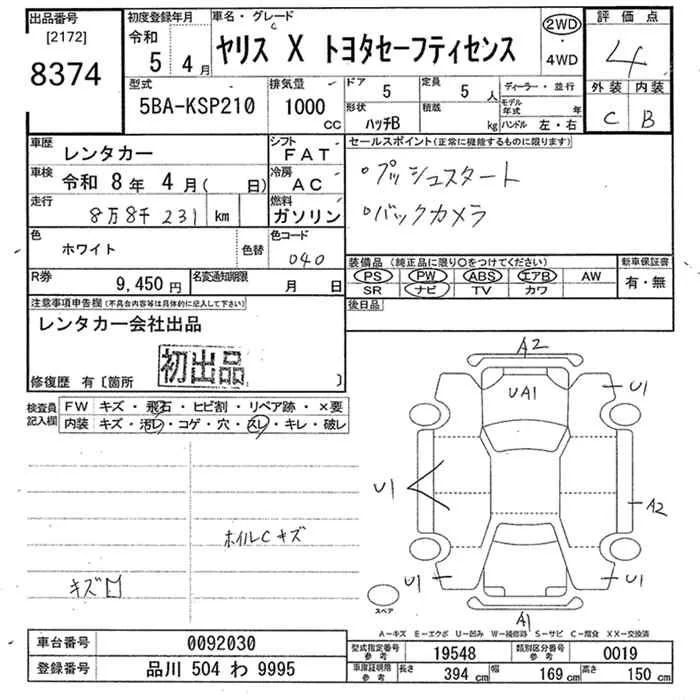 出品番号 [2172] 8374
初度登録年月 令和 5年 4月
車名・グレード ヤリス X トヨタセーフティセンス
2WD・4WD
評価点 4
外装 C 内装 B
型式 5BA-KSP210
排気量 1000 CC
ドア 5 定員 5 人
形状 ハッチB 積載 kg
ディーラー・並行
モデル年式 年
ハンドル 左・右
車歴 レンタカー
シフト FAT
車検 令和 8年 4月( 日)
冷房 AC
走行 8万8千231 km
燃料 ガソリン
色 ホワイト 色替
色コード 040
R券 9,450円
名変通知期限 月 日
セールスポイント(正常に機能するものに限ります)
・プッシュスタート
・バックカメラ
装備品(純正品に限り○をつけてください)
PS PW ABS エアB AW
SR ナビ TV カワ
新車保証書 有・無
後日品
注意事項申告欄(不具合内容等は具体的に記入して下さい)
レンタカー会社出品
初出品
修復歴 有〔箇所 〕
検査員記入欄
FW キズ・飛石・ヒビ割・リペア跡・×要
内装 キズ・汚レ・コゲ・穴・スレ・キレ・破レ
ホイルCキズ
キズ
A2
UA1
U1
U1
A2
U1
U1
A1
スペア
A-キズ E-エクボ U-凹み W-補修跡 S-サビ C-腐食 XX-交換済
車台番号 0092030
登録番号 品川 504 わ 9995
型式指定番号 参考 19548
類別区分番号 参考 0019
車庫証明用 参考 長さ 394 cm 幅 169 cm 高さ 150 cm